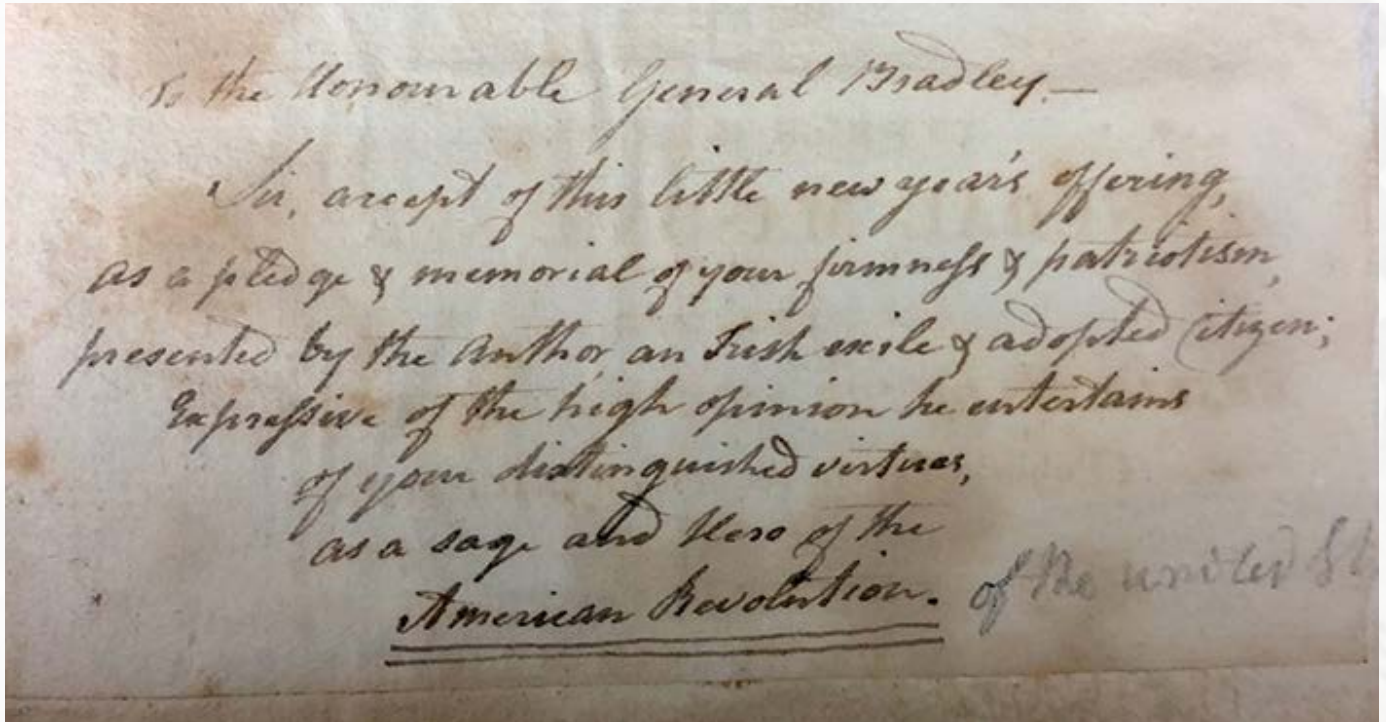 To the Honourable General Bradley.—
Sir, accept of this little new year's offering,
as a pledge & memorial of your firmness & patriotism,
presented by the Author, an Irish exile & adopted Citizen;
Expressive of the high opinion he entertains
of your distinguished virtues,
as a sage and Hero of the
American Revolution. of the united St